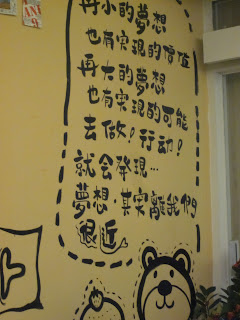 再小的夢想
也有实現的價值
再大的夢想
也有实現的可能
去做!行动!
就会發現…
夢想,其实離我們
很近